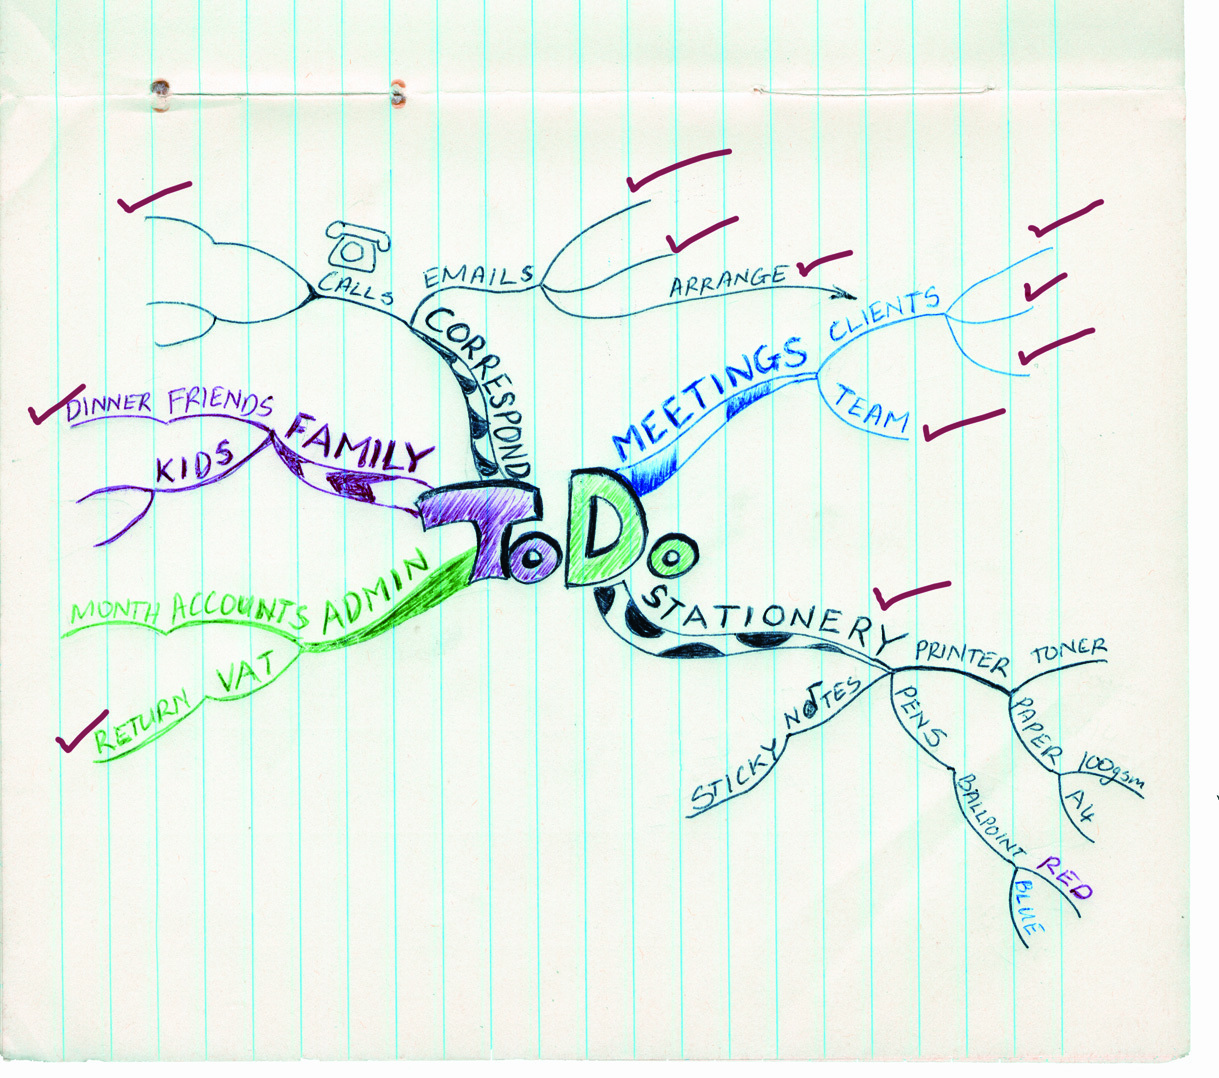 CALLS
EMAILS
ARRANGE
CORRESPOND
MEETINGS
CLIENTS
TEAM
DINNER FRIENDS
FAMILY
KIDS
To Do
ADMIN
MONTH ACCOUNTS
VAT
RETURN
STATIONERY
PRINTER
TONER
PAPER
100gsm
A4
PENS
BALLPOINT
RED
BLUE
NOTES
STICKY